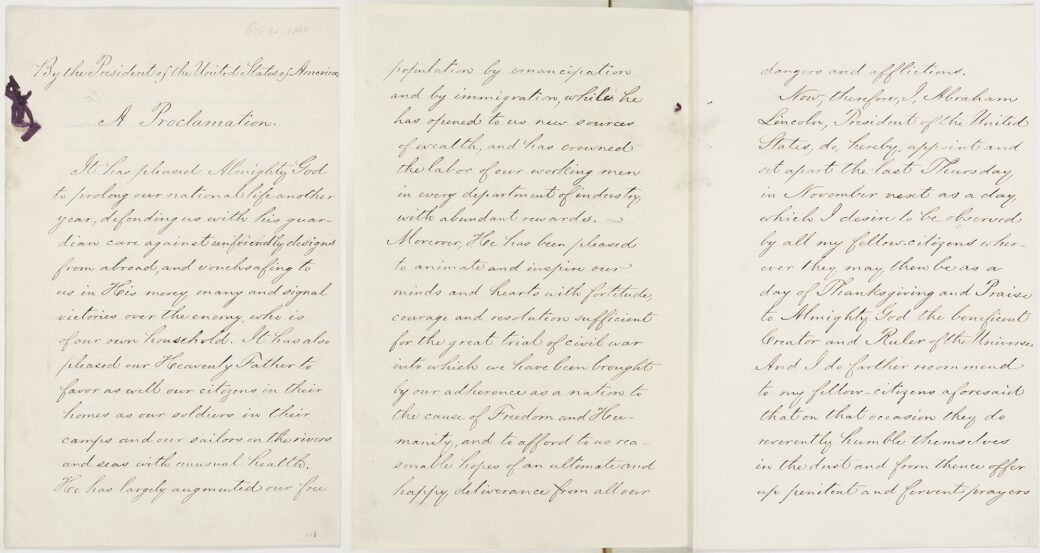 Oct 20. 1864
By the President of the United States of America,
A Proclamation.
It has pleased Almighty God
to prolong our national life another
year, defending us with his guar-
dian care against unfriendly designs
from abroad, and vouchsafing to
us in His mercy many and signal
victories over the enemy, who is
of our own household. It has also
pleased our Heavenly Father to
favor as well our citizens in their
homes as our soldiers in their
camps and our sailors on the rivers
and seas with unusual health.
He has largely augmented our free
118
population by emancipation
and by immigration, while he
has opened to us new sources
of wealth, and has crowned
the labor of our working men
in every department of industry
with abundant rewards. —
Moreover, He has been pleased
to animate and inspire our
minds and hearts with fortitude,
courage and resolution sufficient
for the great trial of civil war
into which we have been brought
by our adherence as a nation to
the cause of Freedom and Hu-
manity, and to afford to us rea-
sonable hopes of an ultimate and
happy deliverance from all our
dangers and afflictions.
Now, therefore, I, Abraham
Lincoln, President of the United
States, do, hereby, appoint and
set apart the last Thursday
in November next as a day,
which I desire to be observed
by all my fellow-citizens wher-
ever they may then be as a
day of Thanksgiving and Praise
to Almighty God the beneficent
Creator and Ruler of the Universe.
And I do farther recommend
to my fellow-citizens aforesaid
that on that occasion they do
reverently humble themselves
in the dust and from thence offer
up penitent and fervent prayers